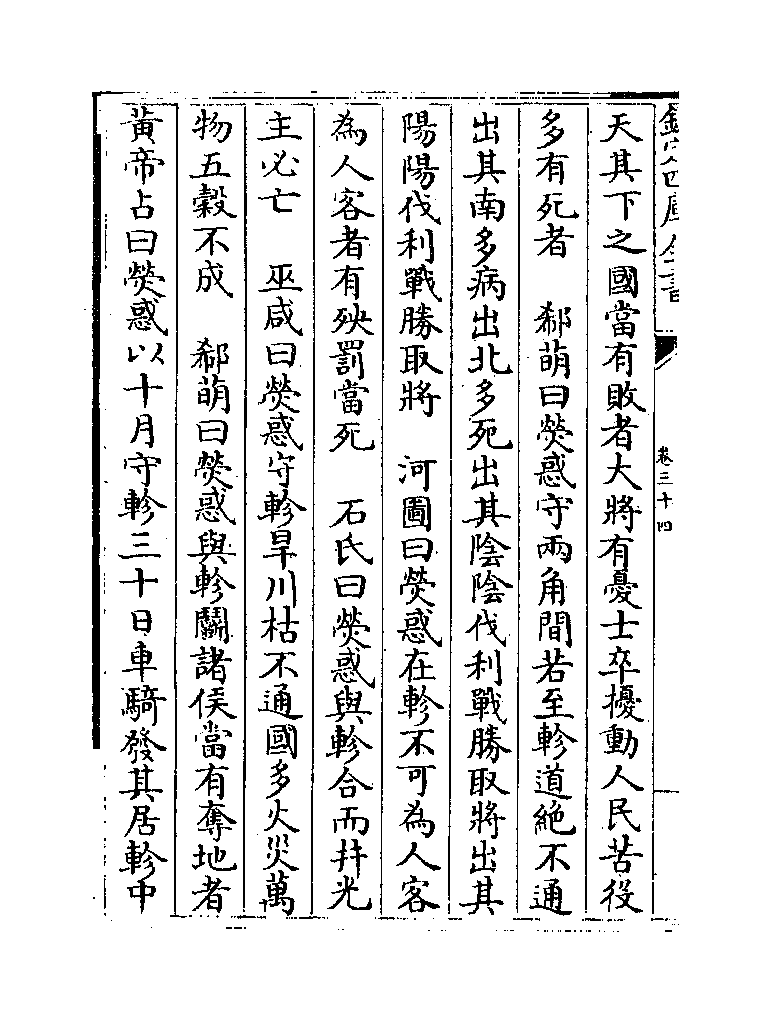 欽定四庫全書
卷三十四
天其下之國當有敗者大將有憂士卒擾動人民苦役
多有死者　郗萌曰熒惑守兩角間若至軫道絶不通
出其南多病出北多死出其陰陰伐利戰勝取將出其
陽陽伐利戰勝取將　河圖曰熒惑在軫不可為人客
為人客者有殃罰當死　石氏曰熒惑與軫合而并光
主必亡　巫咸曰熒惑守軫旱川枯不通國多火災萬
物五穀不成　郗萌曰熒惑與軫鬭諸侯當有奪地者
黃帝占曰熒惑以十月守軫三十日車騎發其居軫中